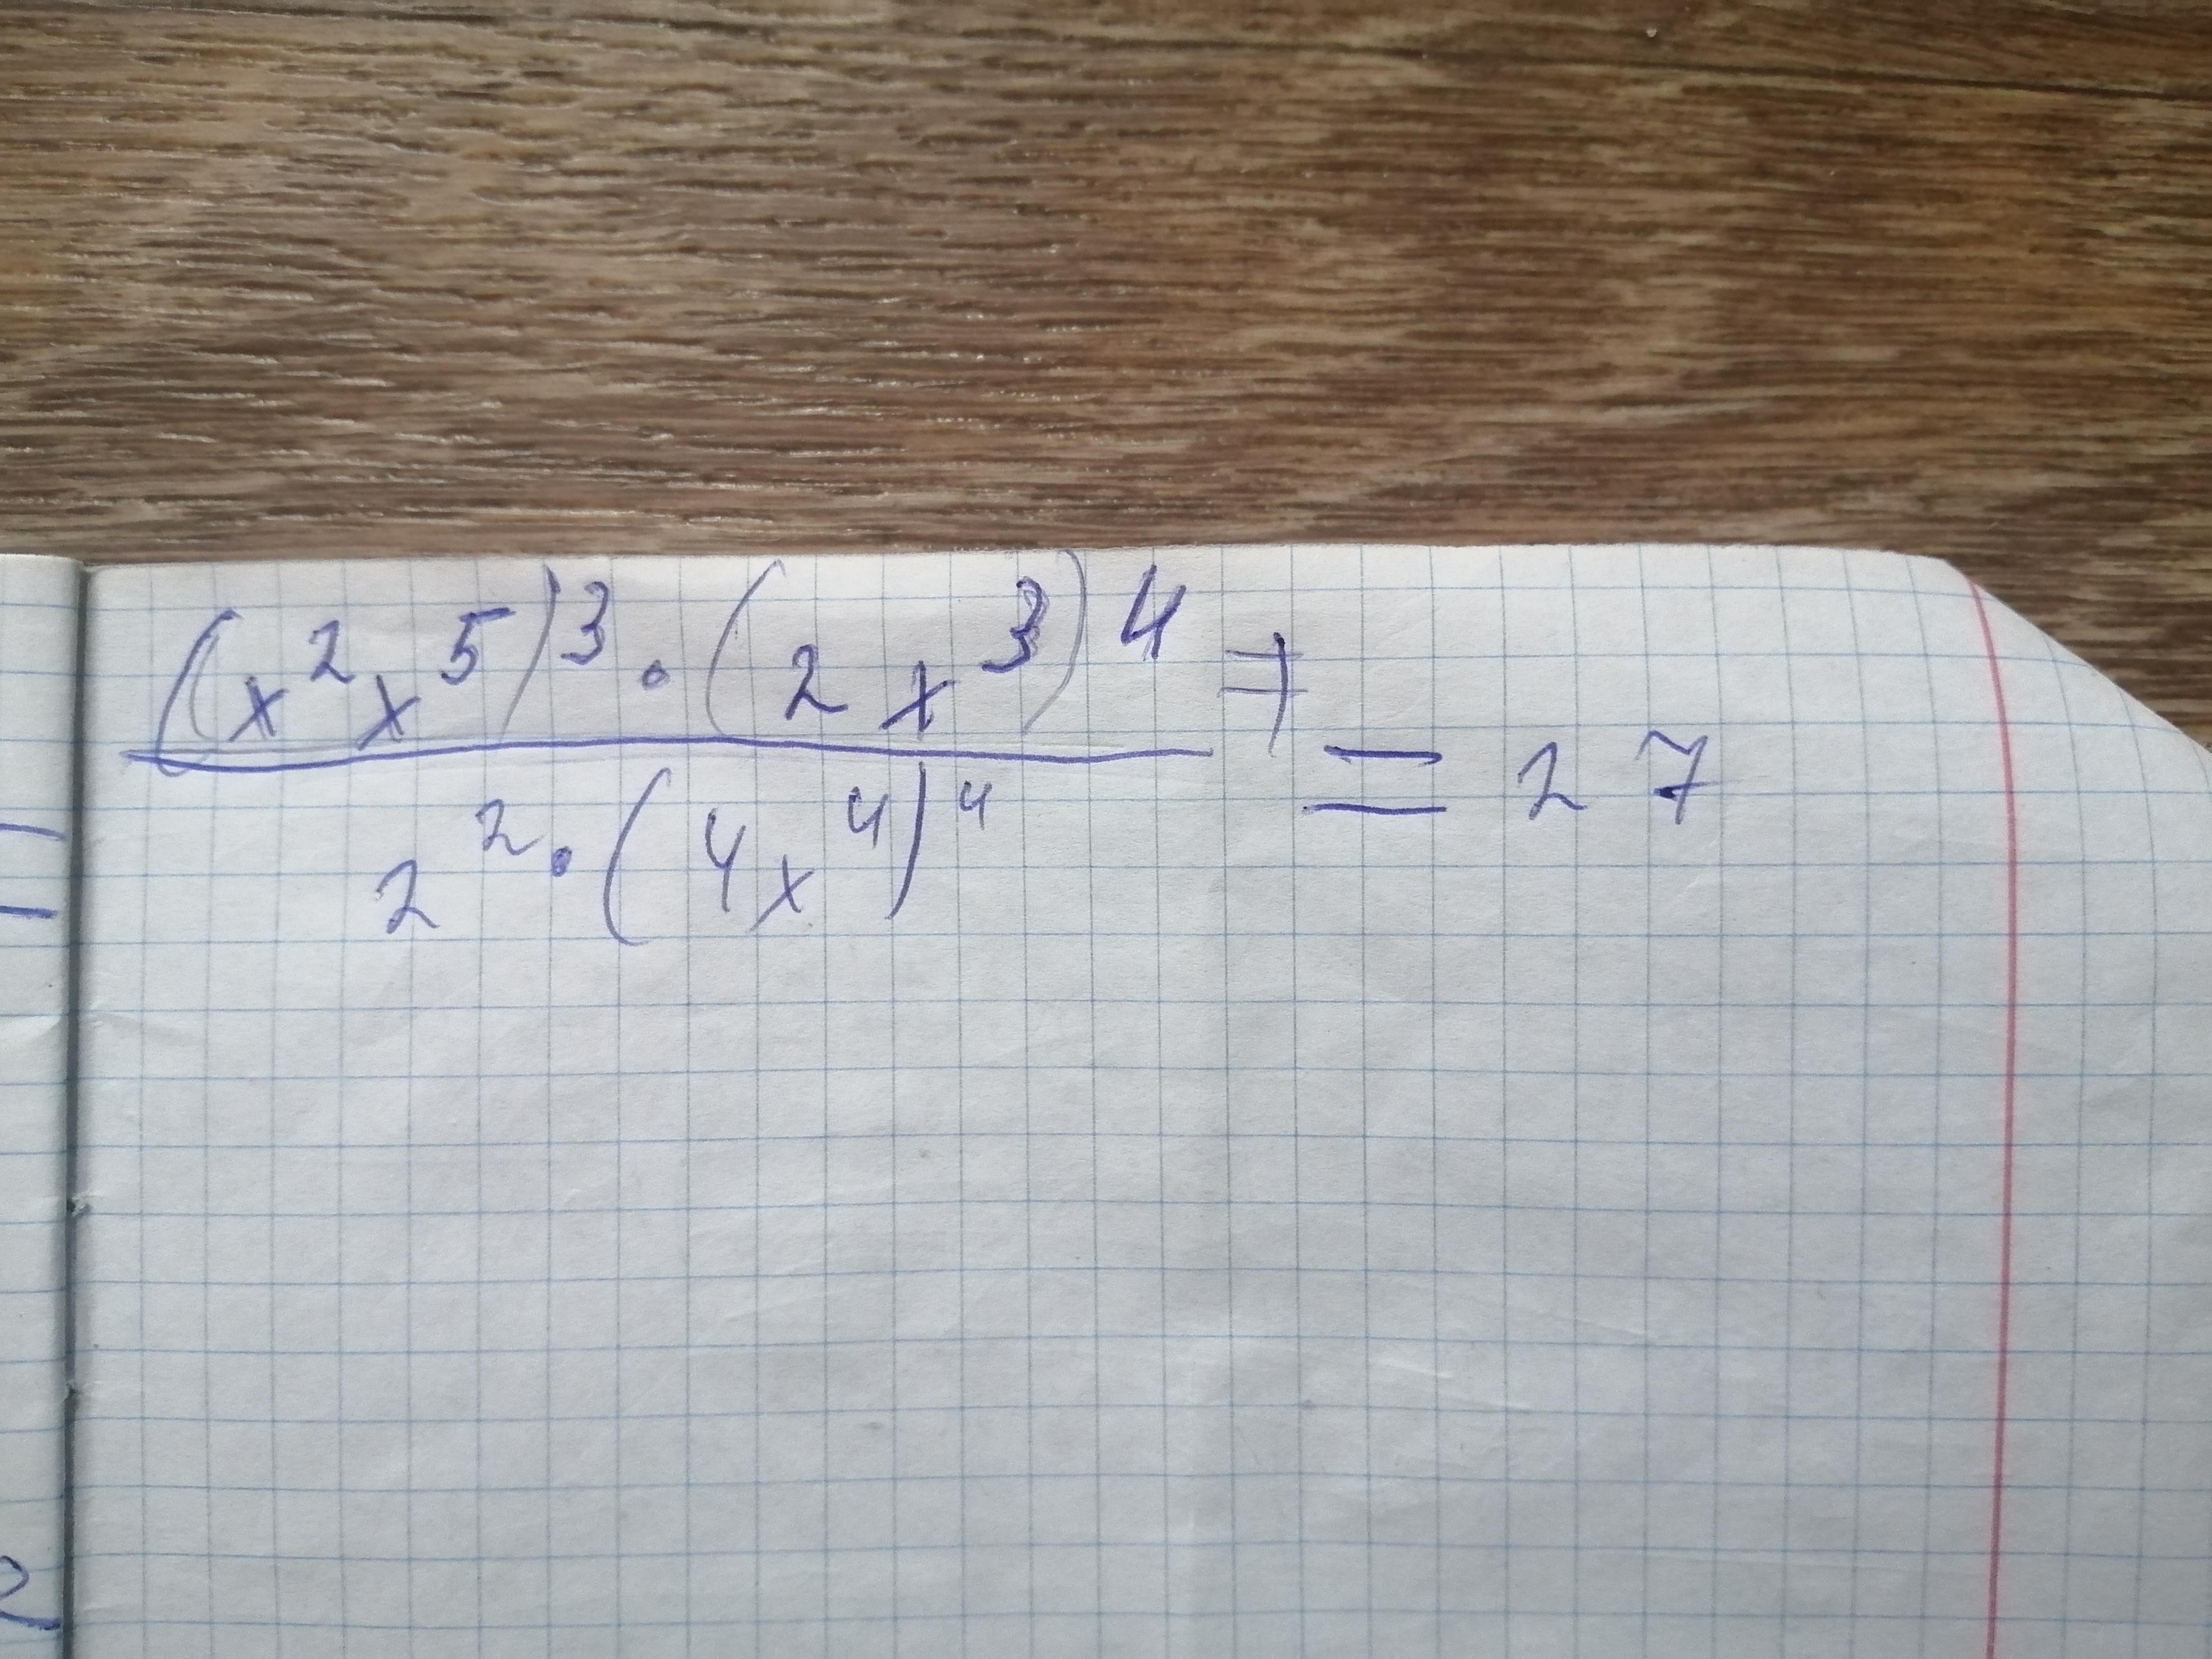 (x²x⁵)³ · (2x³)⁴
= 27
2² · (4x⁴)⁴
=
2